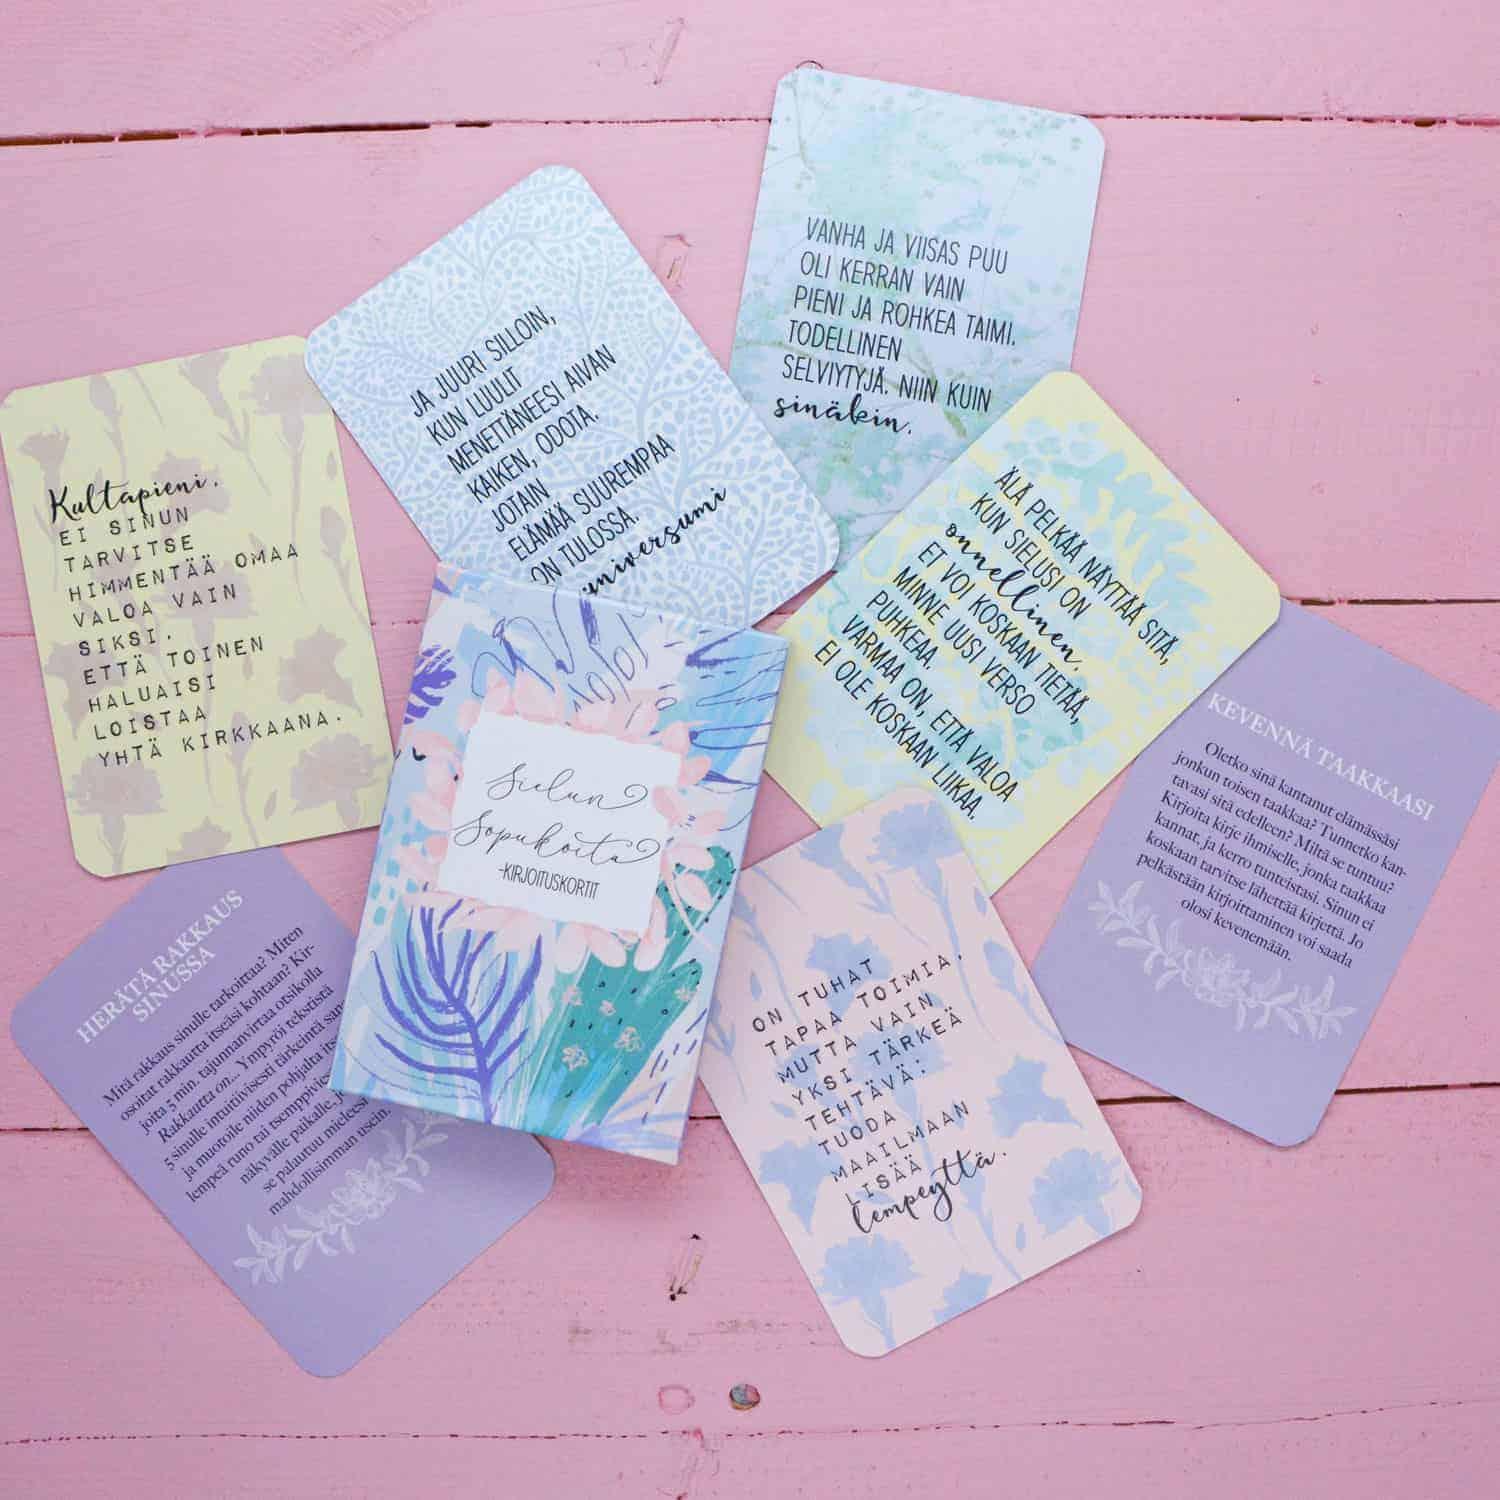 VANHA JA VIISAS PUU
OLI KERRAN VAIN
PIENI JA ROHKEA TAIMI.
TODELLINEN
SELVIYTYJÄ. NIIN KUIN
sinäkin.
JA JUURI SILLOIN,
KUN LUULIT
MENETTÄNEESI AIVAN
KAIKEN, ODOTA.
JOTAIN
ELÄMÄÄ SUUREMPAA
ON TULOSSA.
universumi
Kultapieni.
EI SINUN
TARVITSE
HIMMENTÄÄ OMAA
VALOA VAIN
SIKSI,
ETTÄ TOINEN
HALUAISI
LOISTAA
YHTÄ KIRKKAANA.
ÄLÄ PELKÄÄ NÄYTTÄÄ SITÄ,
KUN SIELUSI ON
onnellinen.
ET VOI KOSKAAN TIETÄÄ,
MINNE UUSI VERSO
PUHKEAA.
VARMAA ON, ETTÄ VALOA
EI OLE KOSKAAN LIIKAA.
Sielun
Sopukoita
-KIRJOITUSKORTIT
KEVENNÄ TAAKKAASI
Oletko sinä kantanut elämässäsi
jonkun toisen taakkaa? Tunnetko kan-
tavasi sitä edelleen? Miltä se tuntuu?
Kirjoita kirje ihmiselle, jonka taakkaa
kannat, ja kerro tunteistasi. Sinun ei
koskaan tarvitse lähettää kirjettä. Jo
pelkästään kirjoittaminen voi saada
olosi kevenemään.
HERÄTÄ RAKKAUS
SINUSSA
Mitä rakkaus sinulle tarkoittaa? Miten
osoitat rakkautta itseäsi kohtaan? Kir-
joita 5 min. tajunnanvirtaa otsikolla
Rakkautta on... Ympyröi tekstistä
5 sinulle intuitiivisesti tärkeintä san
ja muotoile niiden pohjalta its
lempeä runo tai tsemppivies
näkyvälle paikalle, j
se palautuu mieleesi
mahdollisimman usein.
ON TUHAT
TAPAA TOIMIA,
MUTTA VAIN
YKSI TÄRKEÄ
TEHTÄVÄ:
TUODA
MAAILMAAN
LISÄÄ
lempeyttä.